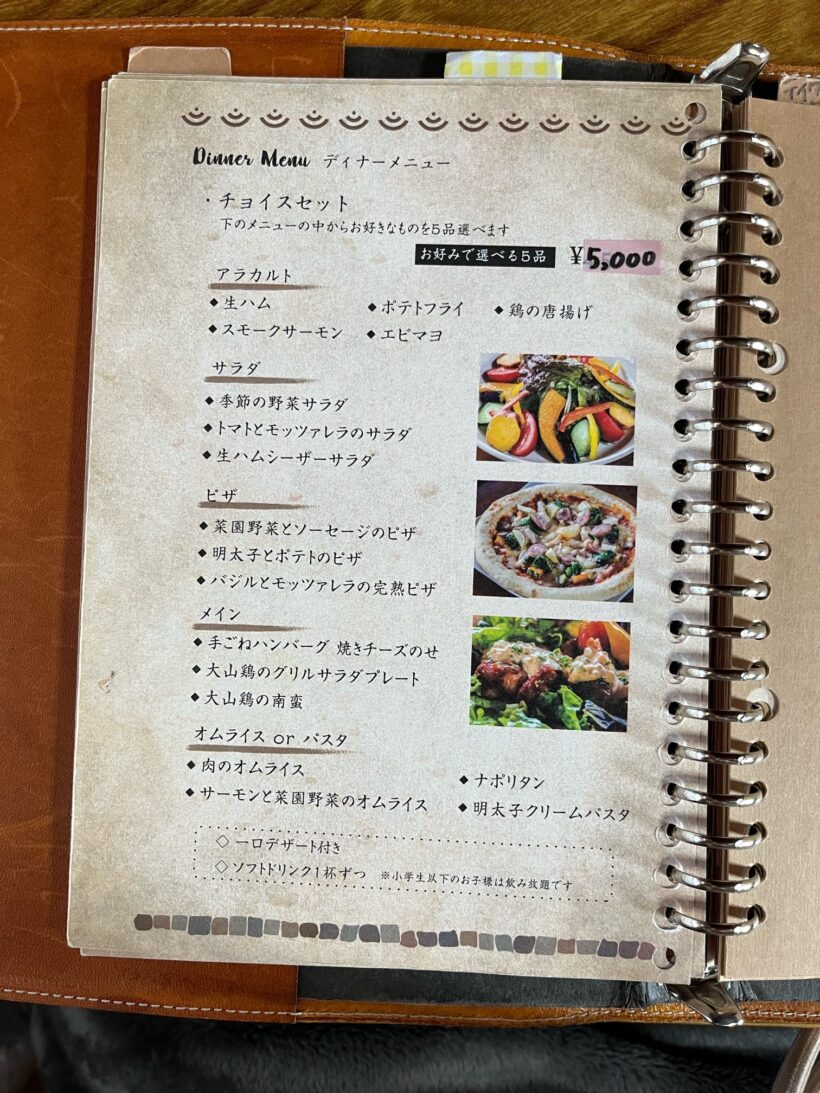 Dinner Menu ディナーメニュー
・チョイスセット
下のメニューの中からお好きなものを5品選べます
お好みで選べる5品 ¥5,000
アラカルト
◆生ハム ◆ポテトフライ ◆鶏の唐揚げ
◆スモークサーモン ◆エビマヨ
サラダ
◆季節の野菜サラダ
◆トマトとモッツァレラのサラダ
◆生ハムシーザーサラダ
ピザ
◆菜園野菜とソーセージのピザ
◆明太子とポテトのピザ
◆バジルとモッツァレラの完熟ピザ
メイン
◆手ごねハンバーグ 焼きチーズのせ
◆大山鶏のグリルサラダプレート
◆大山鶏の南蛮
オムライス or パスタ
◆肉のオムライス ◆ナポリタン
◆サーモンと菜園野菜のオムライス ◆明太子クリームパスタ
◇一口デザート付き
◇ソフトドリンク1杯ずつ ※小学生以下のお子様は飲み放題です